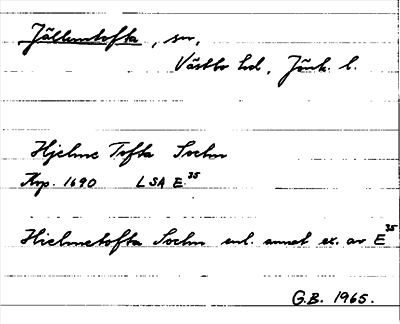 Jälluntofta, sn,
Västbo hd, Jönk. l.
Hjelme Tofta Sochn
Kop. 1690 LSA E.³⁵
Hielmetofta Sochn enl. annat ex. av E³⁵
G.B. 1965.